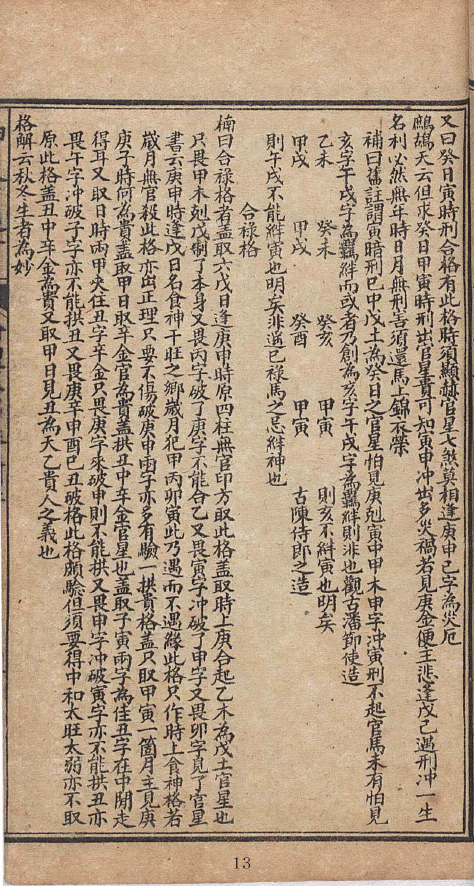 又曰癸日寅時刑合格有此格時須顯赫官星七煞莫相逢庚申己字為災厄
鷓鴣天云但求癸日甲寅時刑出官星貴可知寅申冲出多災禍若見庚金便主悲逢戊己遇刑冲一生
名利必然無年時日月無刑害須還馬上錦衣榮
補曰舊註謂寅暗刑巳中戊土為癸日之官星怕見庚剋寅中甲木申字冲寅刑不起官馬未有怕見
亥字午戌字為羈絆而或者乃創為亥字午戌字為羈絆則非也觀古潘節使造
乙未 癸未 癸亥 甲寅 則亥不絆寅也明矣
甲戌 甲戌 癸酉 甲寅 古陳侍郎之造
則午戌不能絆寅也明矣非邁巳祿馬之忌絆神也
合祿格
楠曰合祿格者盖取六戊日逢庚申時原四柱無官印方取此格盖取時上庚合起乙木為戊土官星也
只畏甲木剋戊制了本身又畏丙字破了庚字不能合乙又畏寅字冲破了申字又畏卯字見了官星
書云庚申時逢戊日名食神干旺之鄉歲月犯甲丙卯寅此乃遇而不遇緣此格只作時上食神格若
歲月無官殺此格亦出正理只要不傷破庚申兩字亦多有驗一拱貴格盖只取甲寅一箇月主見庚
庚子時何為貴盖取甲日取辛金官為貴盖拱丑中辛金官星也盖取子寅兩字為佳丑字在中開走
得耳又取日時兩甲夾住丑字辛金只畏庚字來破甲則不能拱又畏申字冲破寅字亦不能拱丑亦
畏午字冲破子字亦不能拱丑又畏庚辛申酉巳丑破格此格頗驗但須要得中和太旺太弱亦不取
原此格盖丑中辛金為貴又取甲日見丑為天乙貴人之義也
格解云秋冬生者為妙
13